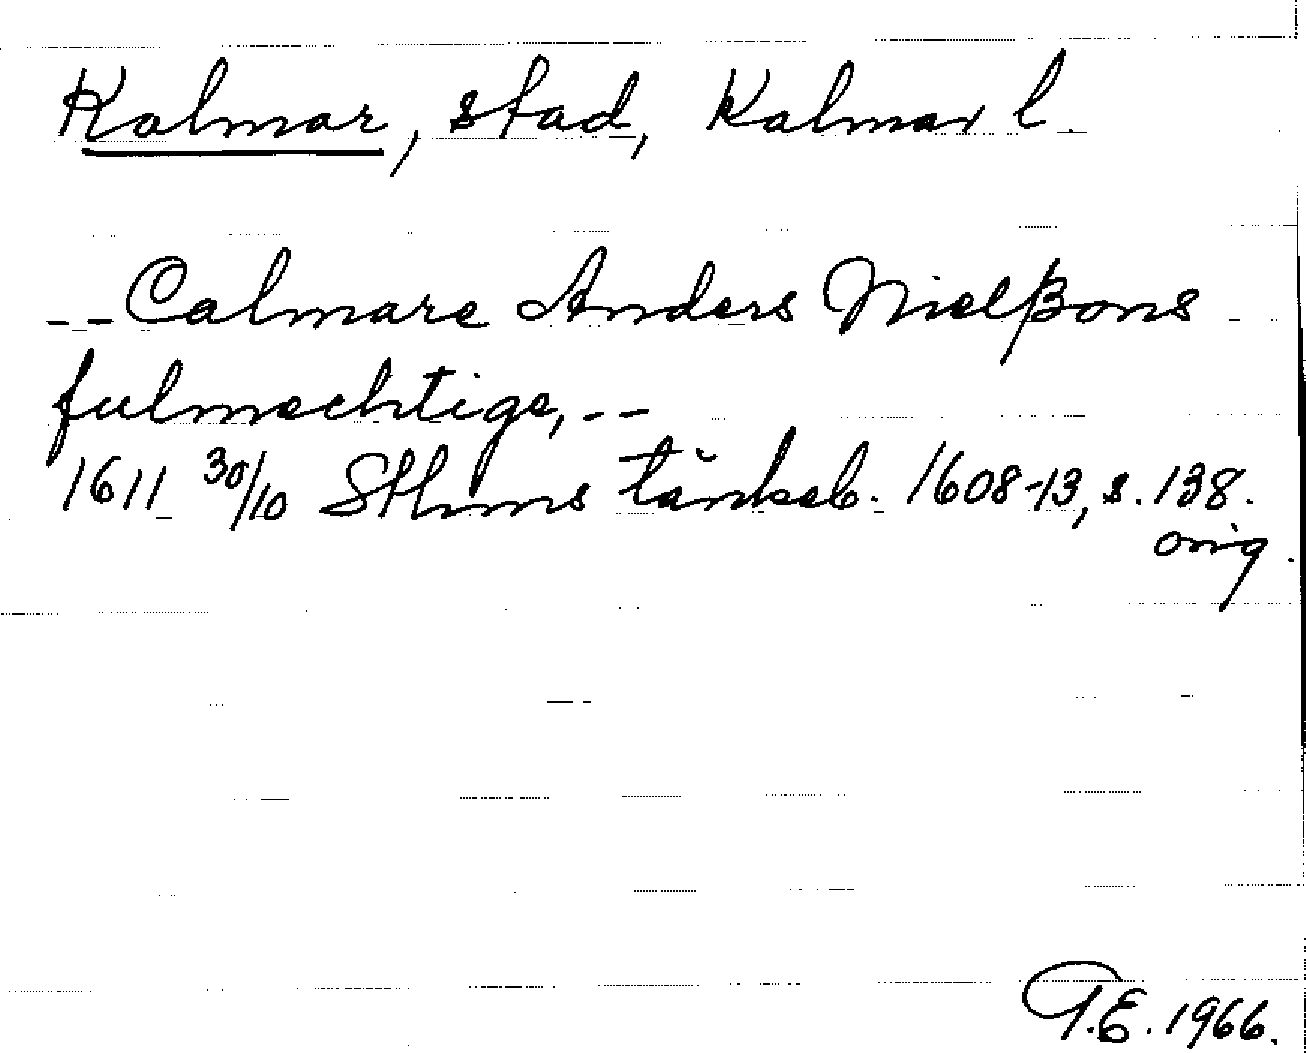 Kalmar, stad, Kalmar l.
-- Calmare Anders Nielßons
fulmechtige, --
1611 30/10 Sthms tänkeb. 1608-13, s. 138.
orig.
T.E. 1966.